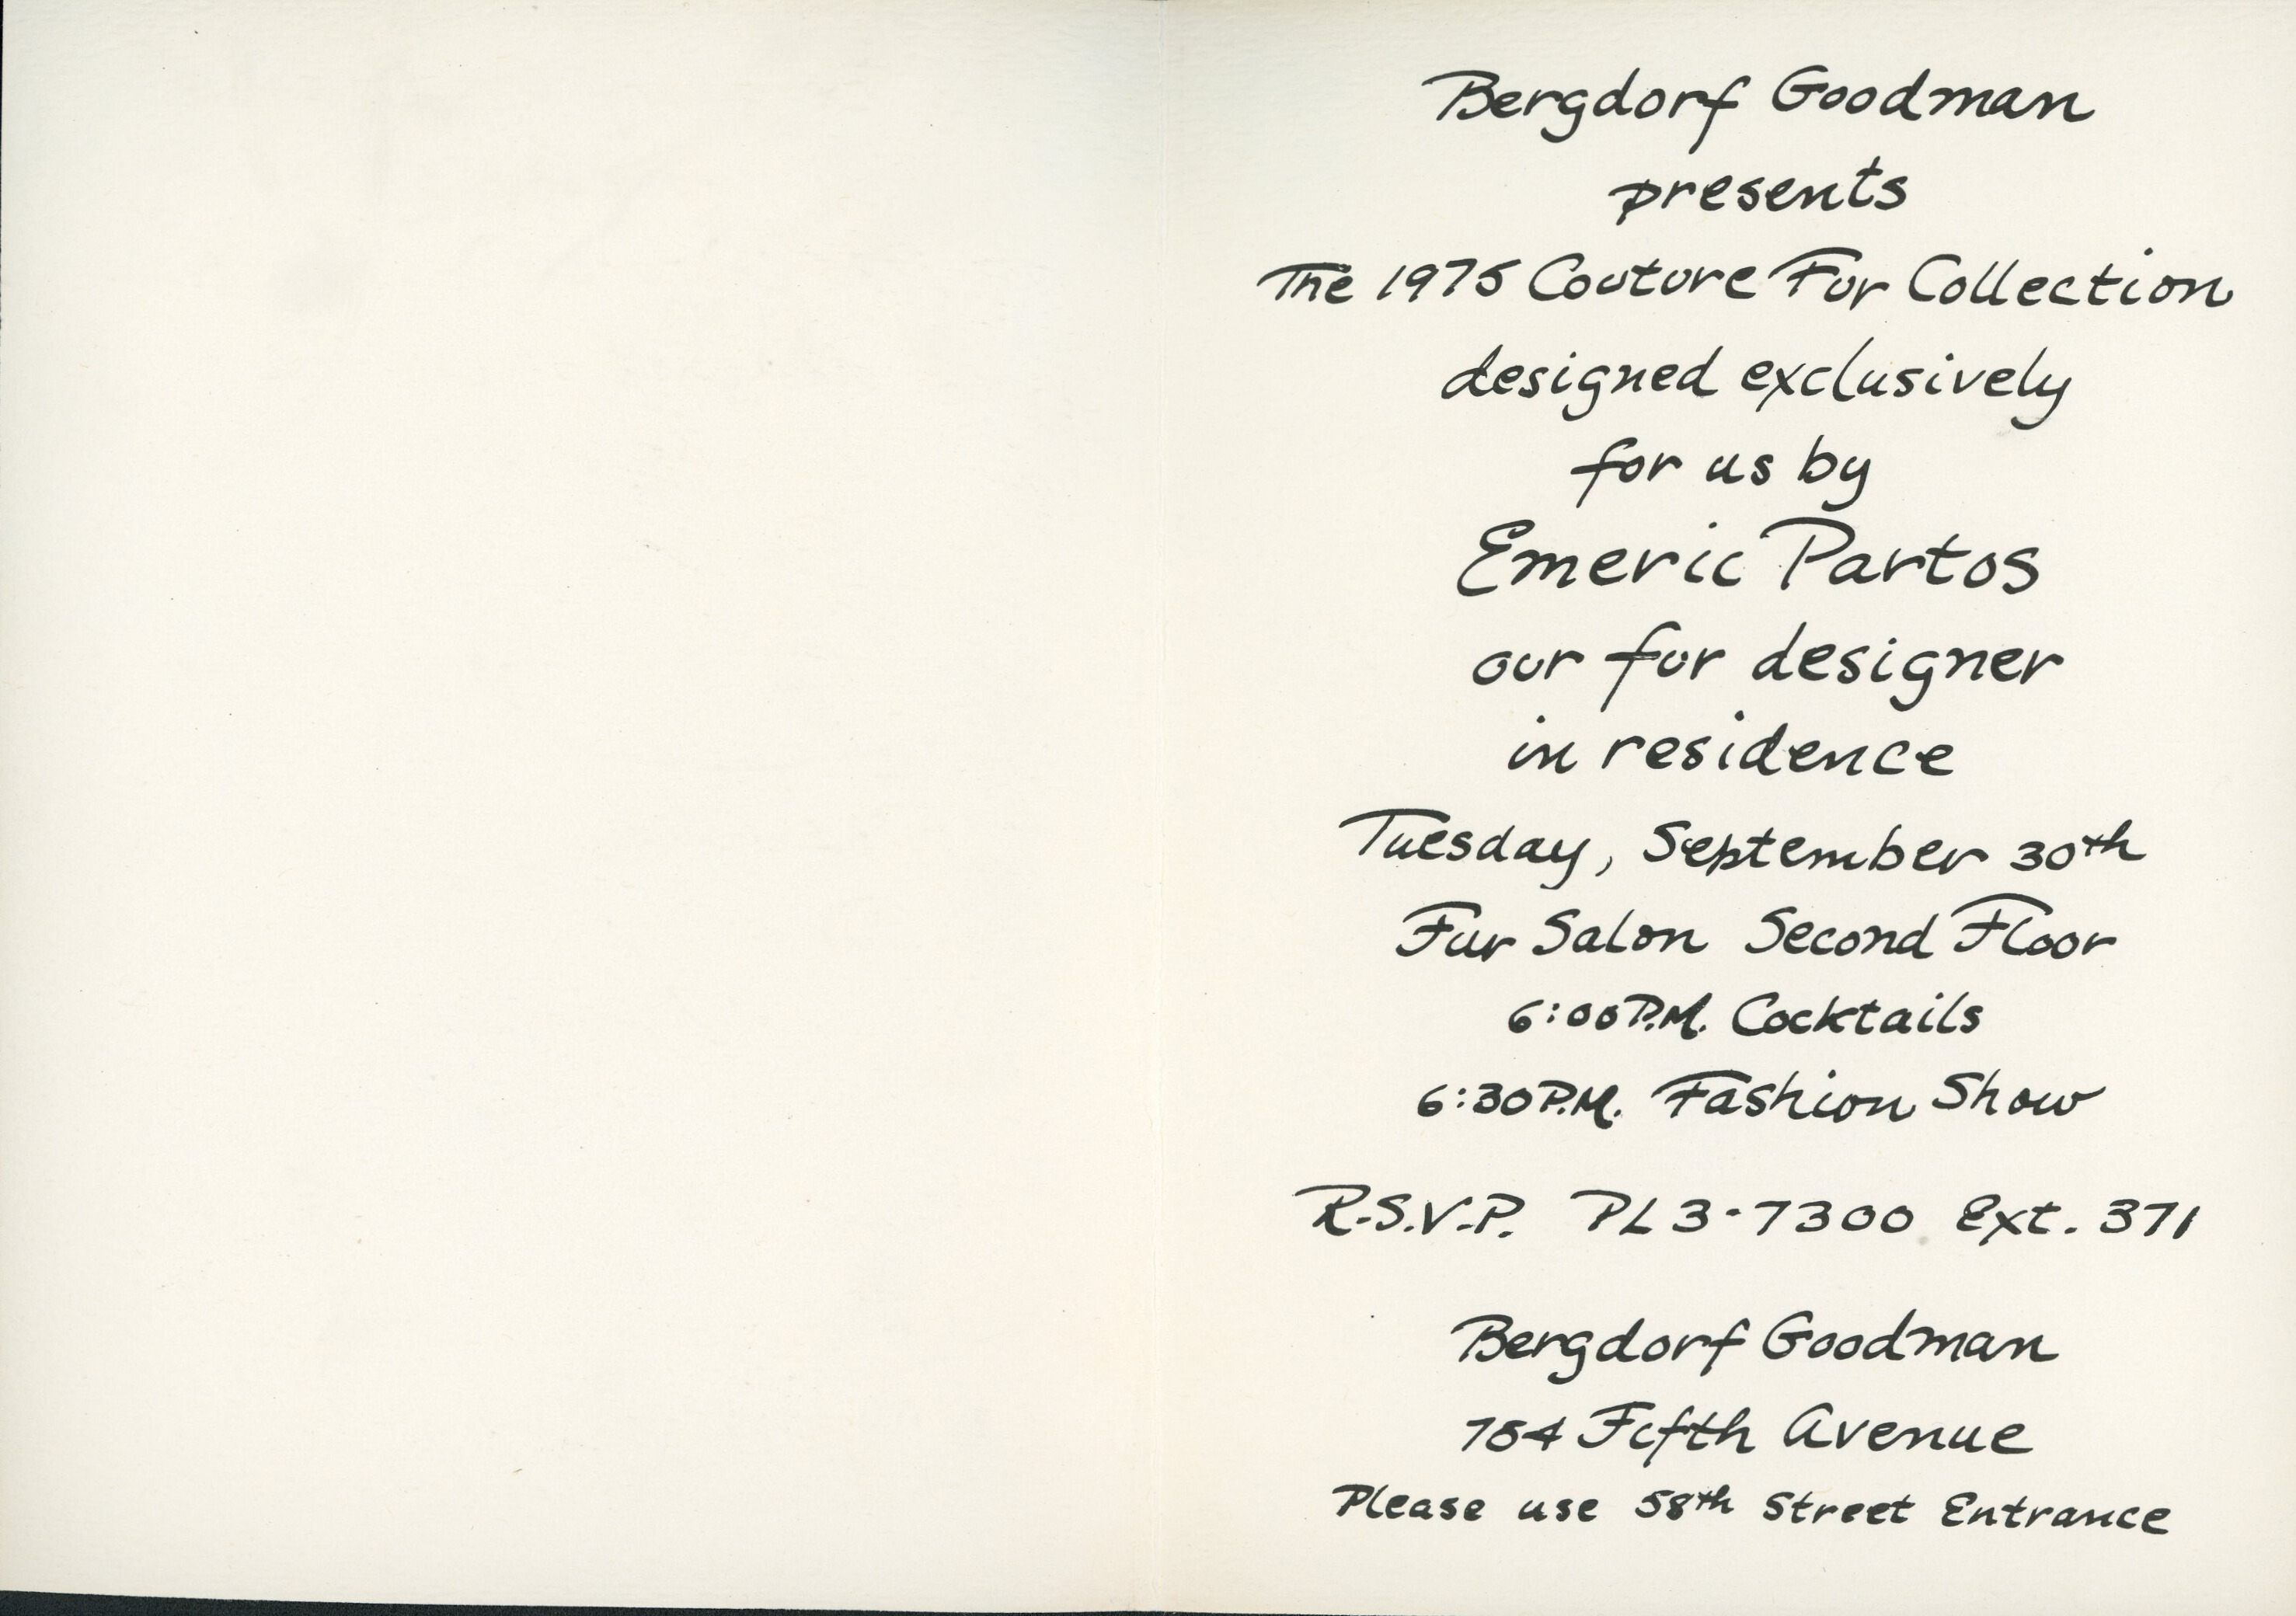 Bergdorf Goodman
presents
The 1975 Couture Fur Collection
designed exclusively
for us by
Emeric Partos
our fur designer
in residence
Tuesday, September 30th
Fur Salon Second Floor
6:00 P.M. Cocktails
6:30 P.M. Fashion Show
R.S.V.P. PL3-7300 Ext. 371
Bergdorf Goodman
754 Fifth Avenue
Please use 58th Street Entrance